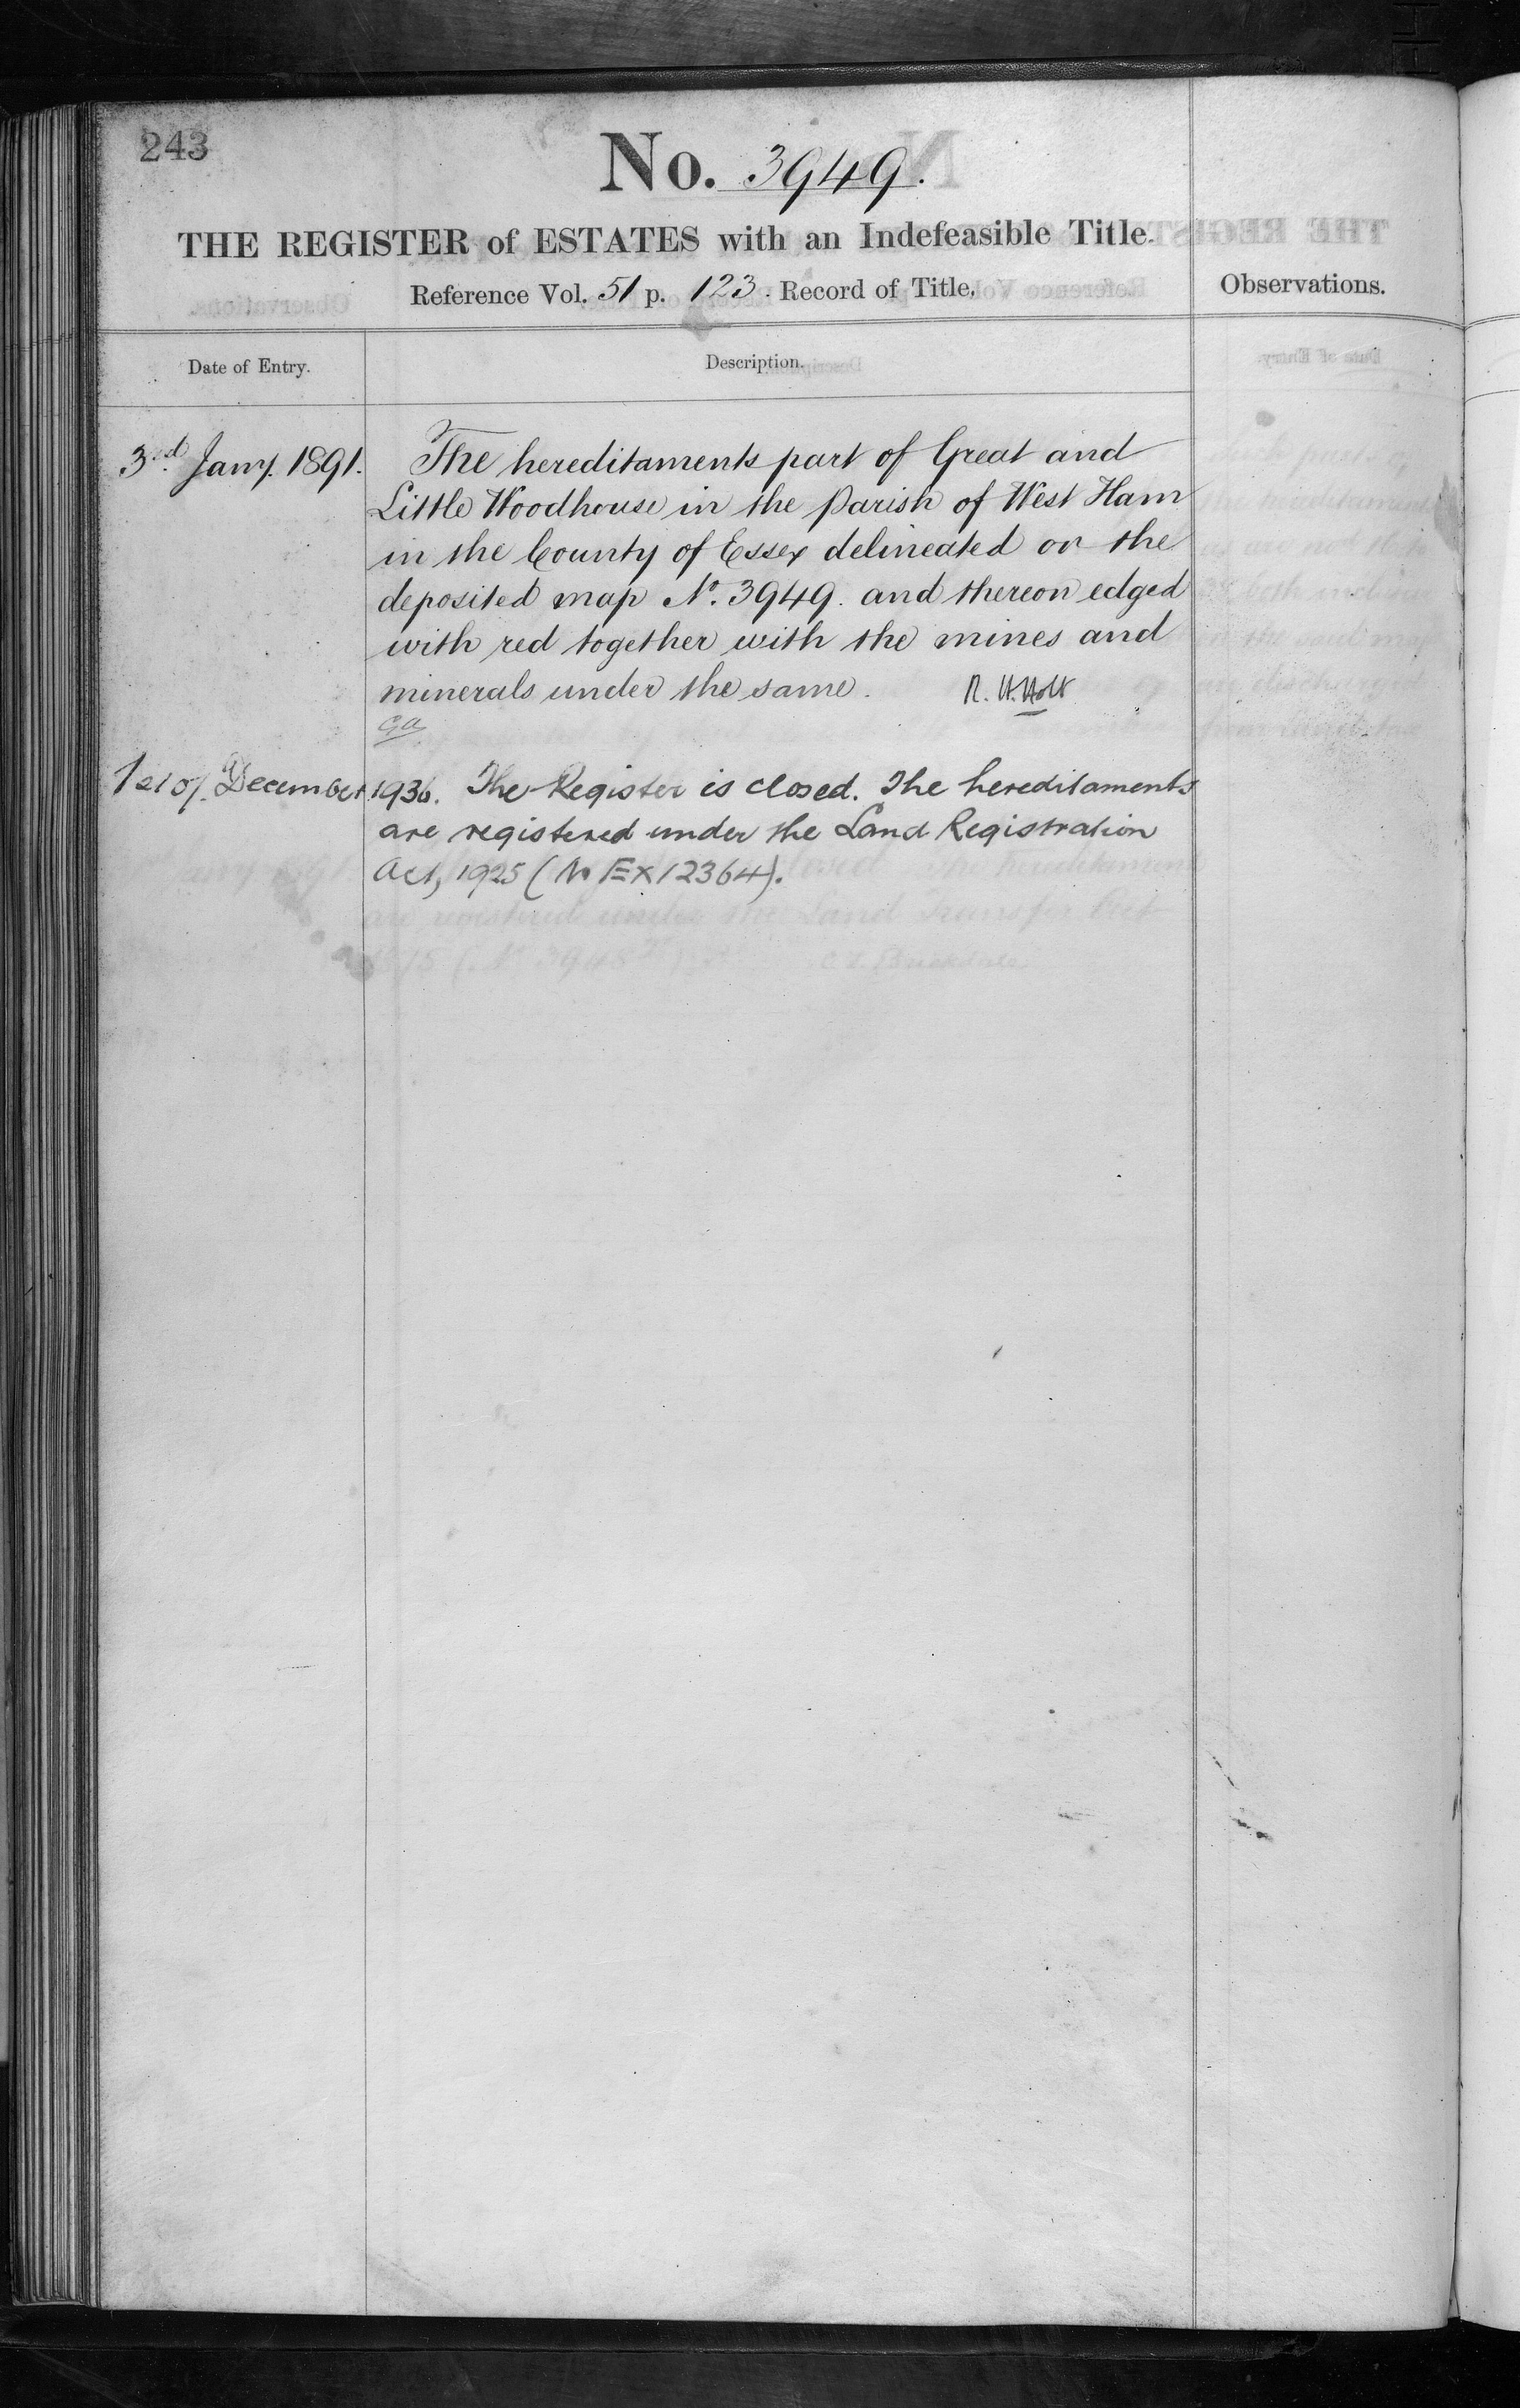 243
No. 3949.
THE REGISTER of ESTATES with an Indefeasible Title.
Reference Vol. 51 p. 123. Record of Title.
Observations.
Date of Entry.
Description.
3rd Jany. 1891. The hereditaments part of Great and
Little Woodhouse in the Parish of West Ham
in the County of Essex delineated on the
deposited map No. 3949. and thereon edged
with red together with the mines and
minerals under the same. R. H. Holt
1st of December 1936. The Register is closed. The hereditaments
are registered under the Land Registration
Act, 1925 (No EX12364).